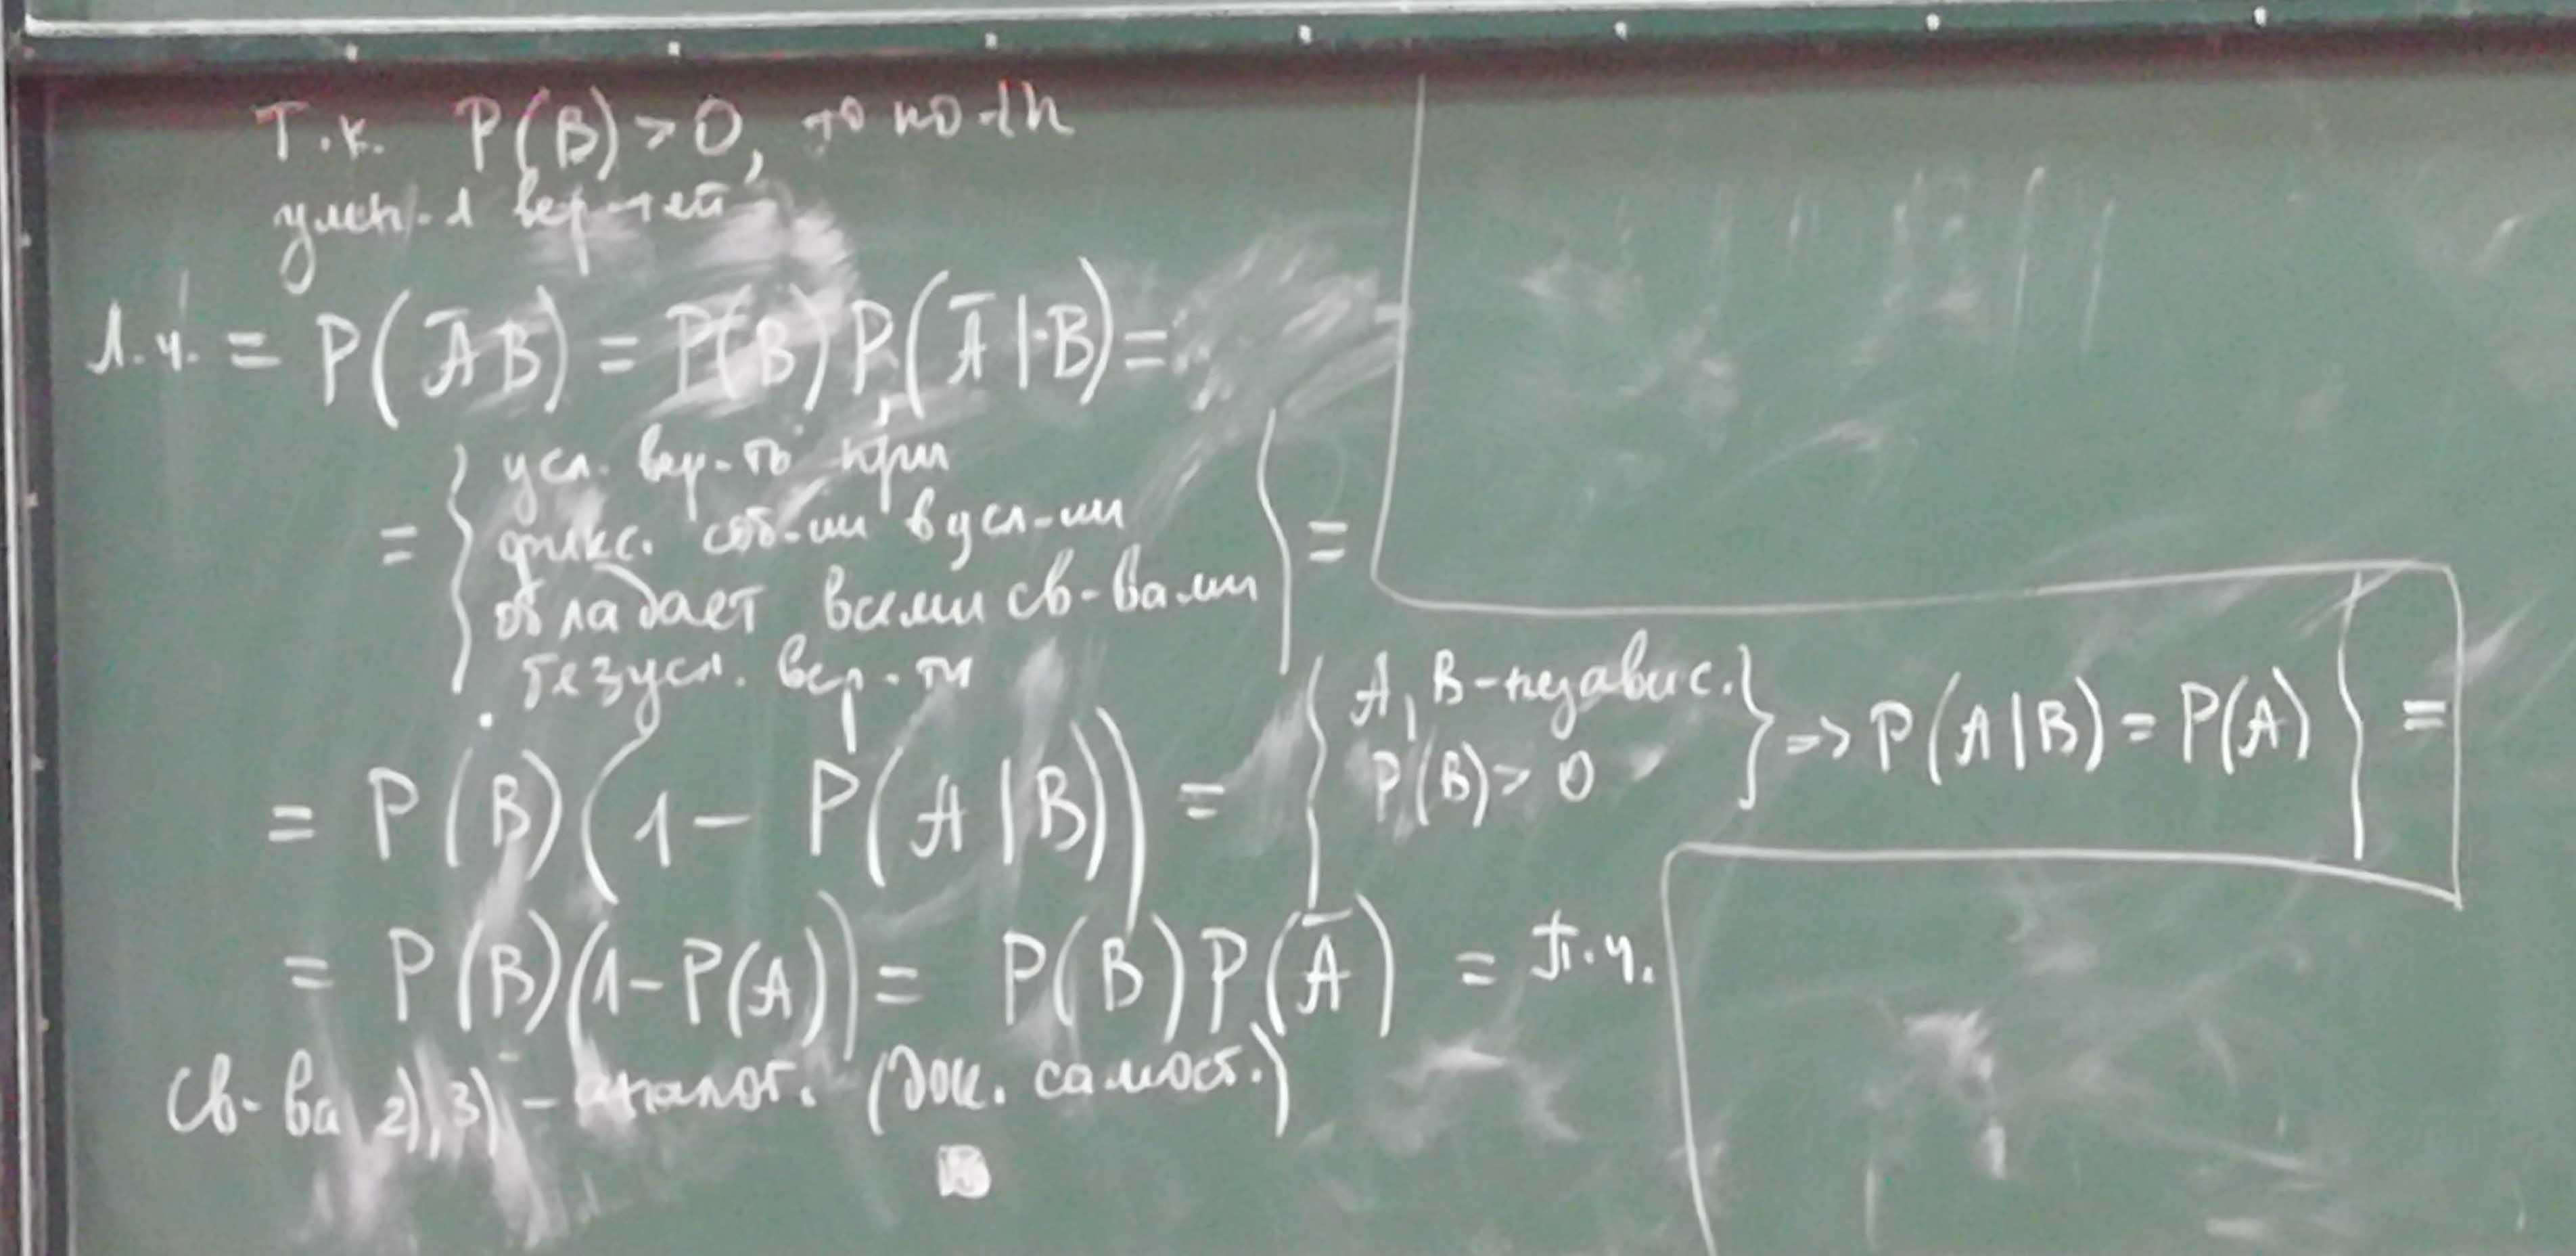 Т.к. P(B) > 0, то по th
умн-я вер-тей
Л.ч. = P(ĀB) = P(B) P(Ā|B) =
= { усл. вер-ть при
фикс. соб-ии в усл-ии
обладает всеми св-вами
безусл. вер-ти } =
= P(B)(1 - P(A|B)) = { A, B - независ.
P(B) > 0 } => P(A|B) = P(A) } =
= P(B)(1-P(A)) = P(B)P(Ā) = П.ч.
Св-ва 2), 3) - аналог. (док. самост.)